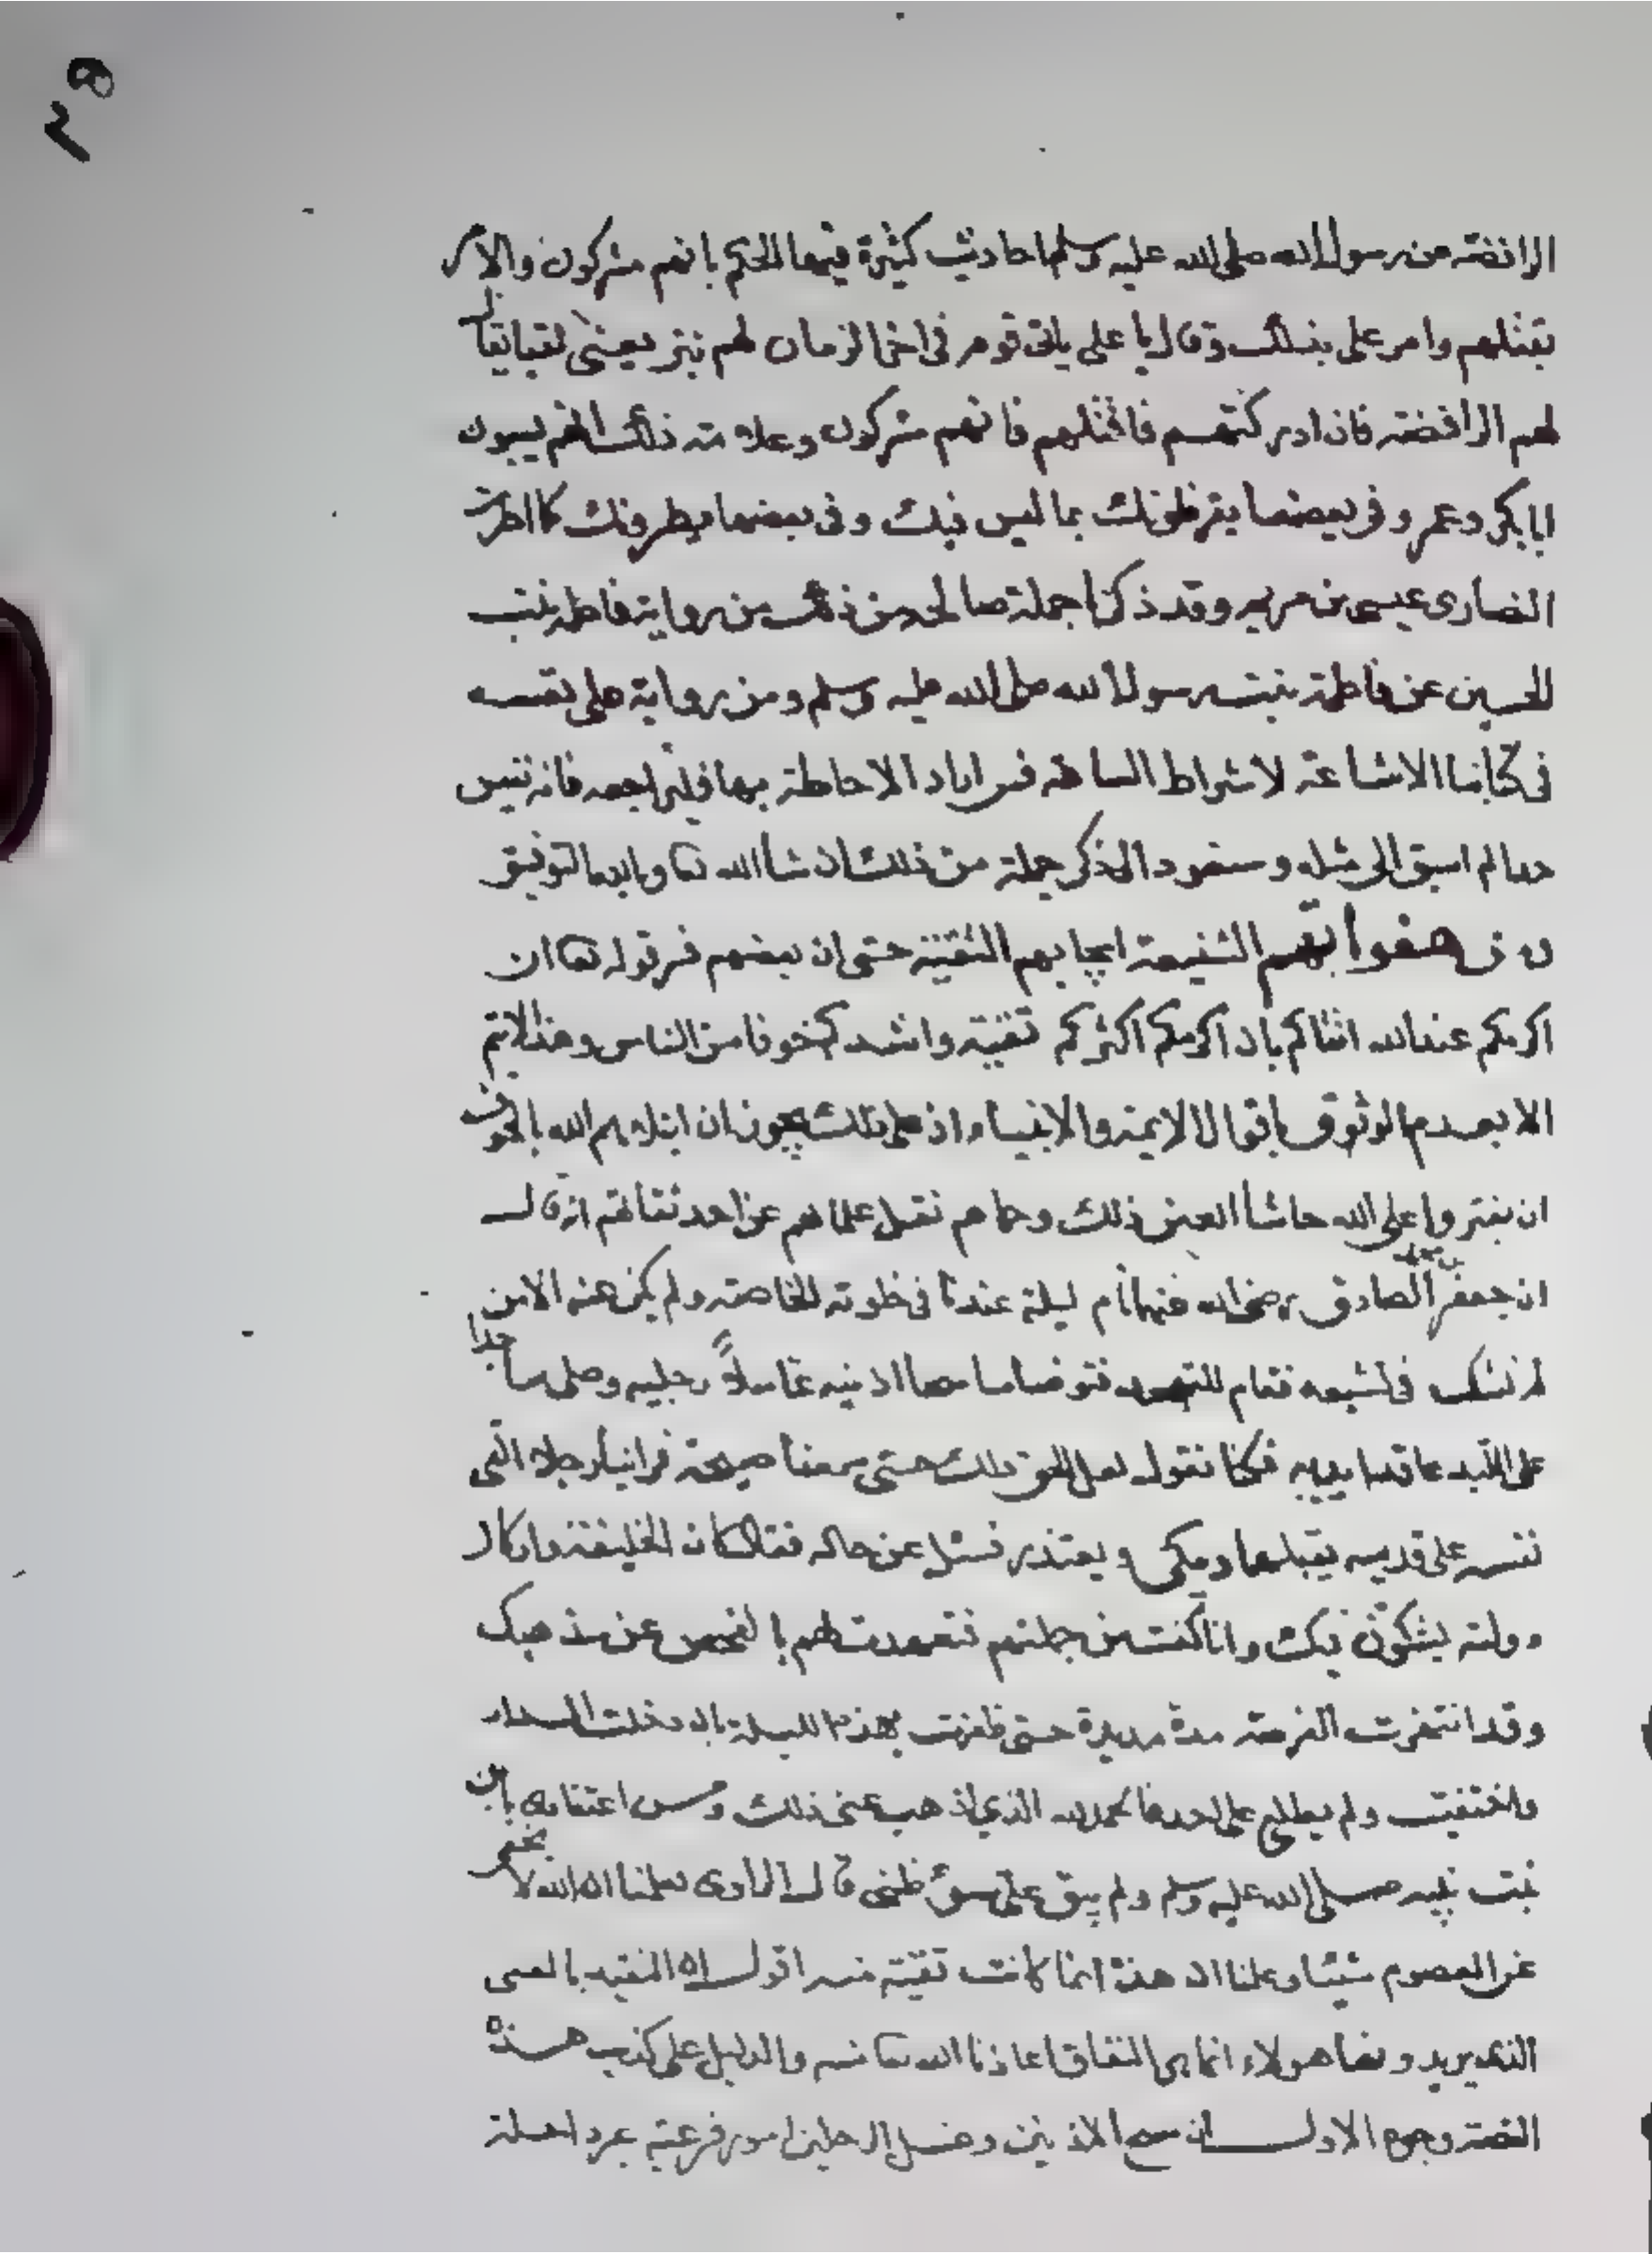 ٢٥
الرافضة عن رسول الله صلى الله عليه وسلم احاديث كثيرة فيها الحكم بانهم مشركون والامر
بقتلهم وامر على بذلك وقال يا على ياتى قوم فى اخر الزمان لهم نبز يعنى لقبا يقال
لهم الرافضة فاذا ادركتهم فاقتلهم فانهم مشركون وعلامة ذلك انهم يسبون
ابا بكر وعمر وفى بعضها يقرظونك بما ليس فيك وفى بعضها يطرونك كما اطرت
النصارى عيسى بن مريم وقد ذكرنا جملة صالحة من ذلك من رواية فاطمة بنت
الحسين عن فاطمة بنت رسول الله صلى الله عليه وسلم ومن رواية على نفسه
فى كتابنا الاشاعة لاشراط الساعة فمن اراد الاحاطة بها فليراجعه فانه نفيس
جدا لم اسبق الى مثله وسنعود الى ذكر جملة من ذلك ان شا الله تعا وبالله التوفيق
هفواتهم الشنيعة ايجابهم التقية حتى ان بعضهم فسر قوله تعا ان
اكرمكم عند الله اتقاكم بان اكرمكم اكثركم تقية واشدكم خوفا من الناس وهذا لا يتم
الا بعدم الوثوق باقوال الايمة والانبياء اذ على ذلك يجوز ان ابتلاهم الله بالخوف
ان يفتروا على الله حاشا ذلك وها هم نقل علماهم عن احد ثقاتهم انه قال
ان جعفر بن محمد الصادق رضى الله عنهما نام ليلة عندنا فى خلوته الخاصة ولم يكن عنده الا من
لم نشك فى تشيعه فقام للتهجد فتوضا ماسحا اذنيه غاسلا رجليه وصلى ساجدا
على اللبد عاقدا يديه فكنا نقول لعل الحق ذلك حتى سمعنا صيحة فراينا رجلا القى
نفسه على قدميه يقبلهما ويبكى ويعتذر فسئل عن حاله فقال كان الخليفة واركان
دولته يشكون فيك وانا كنت من جملتهم فتعهدت لهم بالفحص عن مذهبك
وقد انتهزت الفرصة مدة مديدة حتى ظفرت بهذه الليلة بان دخلت الدار
واختفيت ولم يطلع على احد فالحمد لله الذي اذهب عنى ذلك وحسن اعتقادى بابن
بنت نبيه صلى الله عليه وسلم ولم يبق على سوئ ظنى قال الراوى فعلمنا ان الله لا يخفى
عن المعصوم شيئا وعلمنا ان هذه انما كانت تقية منه اقول ان التقية بالمعنى
الذى يريدونها هولاء انما هى النفاق اعاذنا الله تعا منه والدليل على كذب هذه
القصة وجوه الاول ان مسح الاذنين وغسل الرجلين امور فرعية